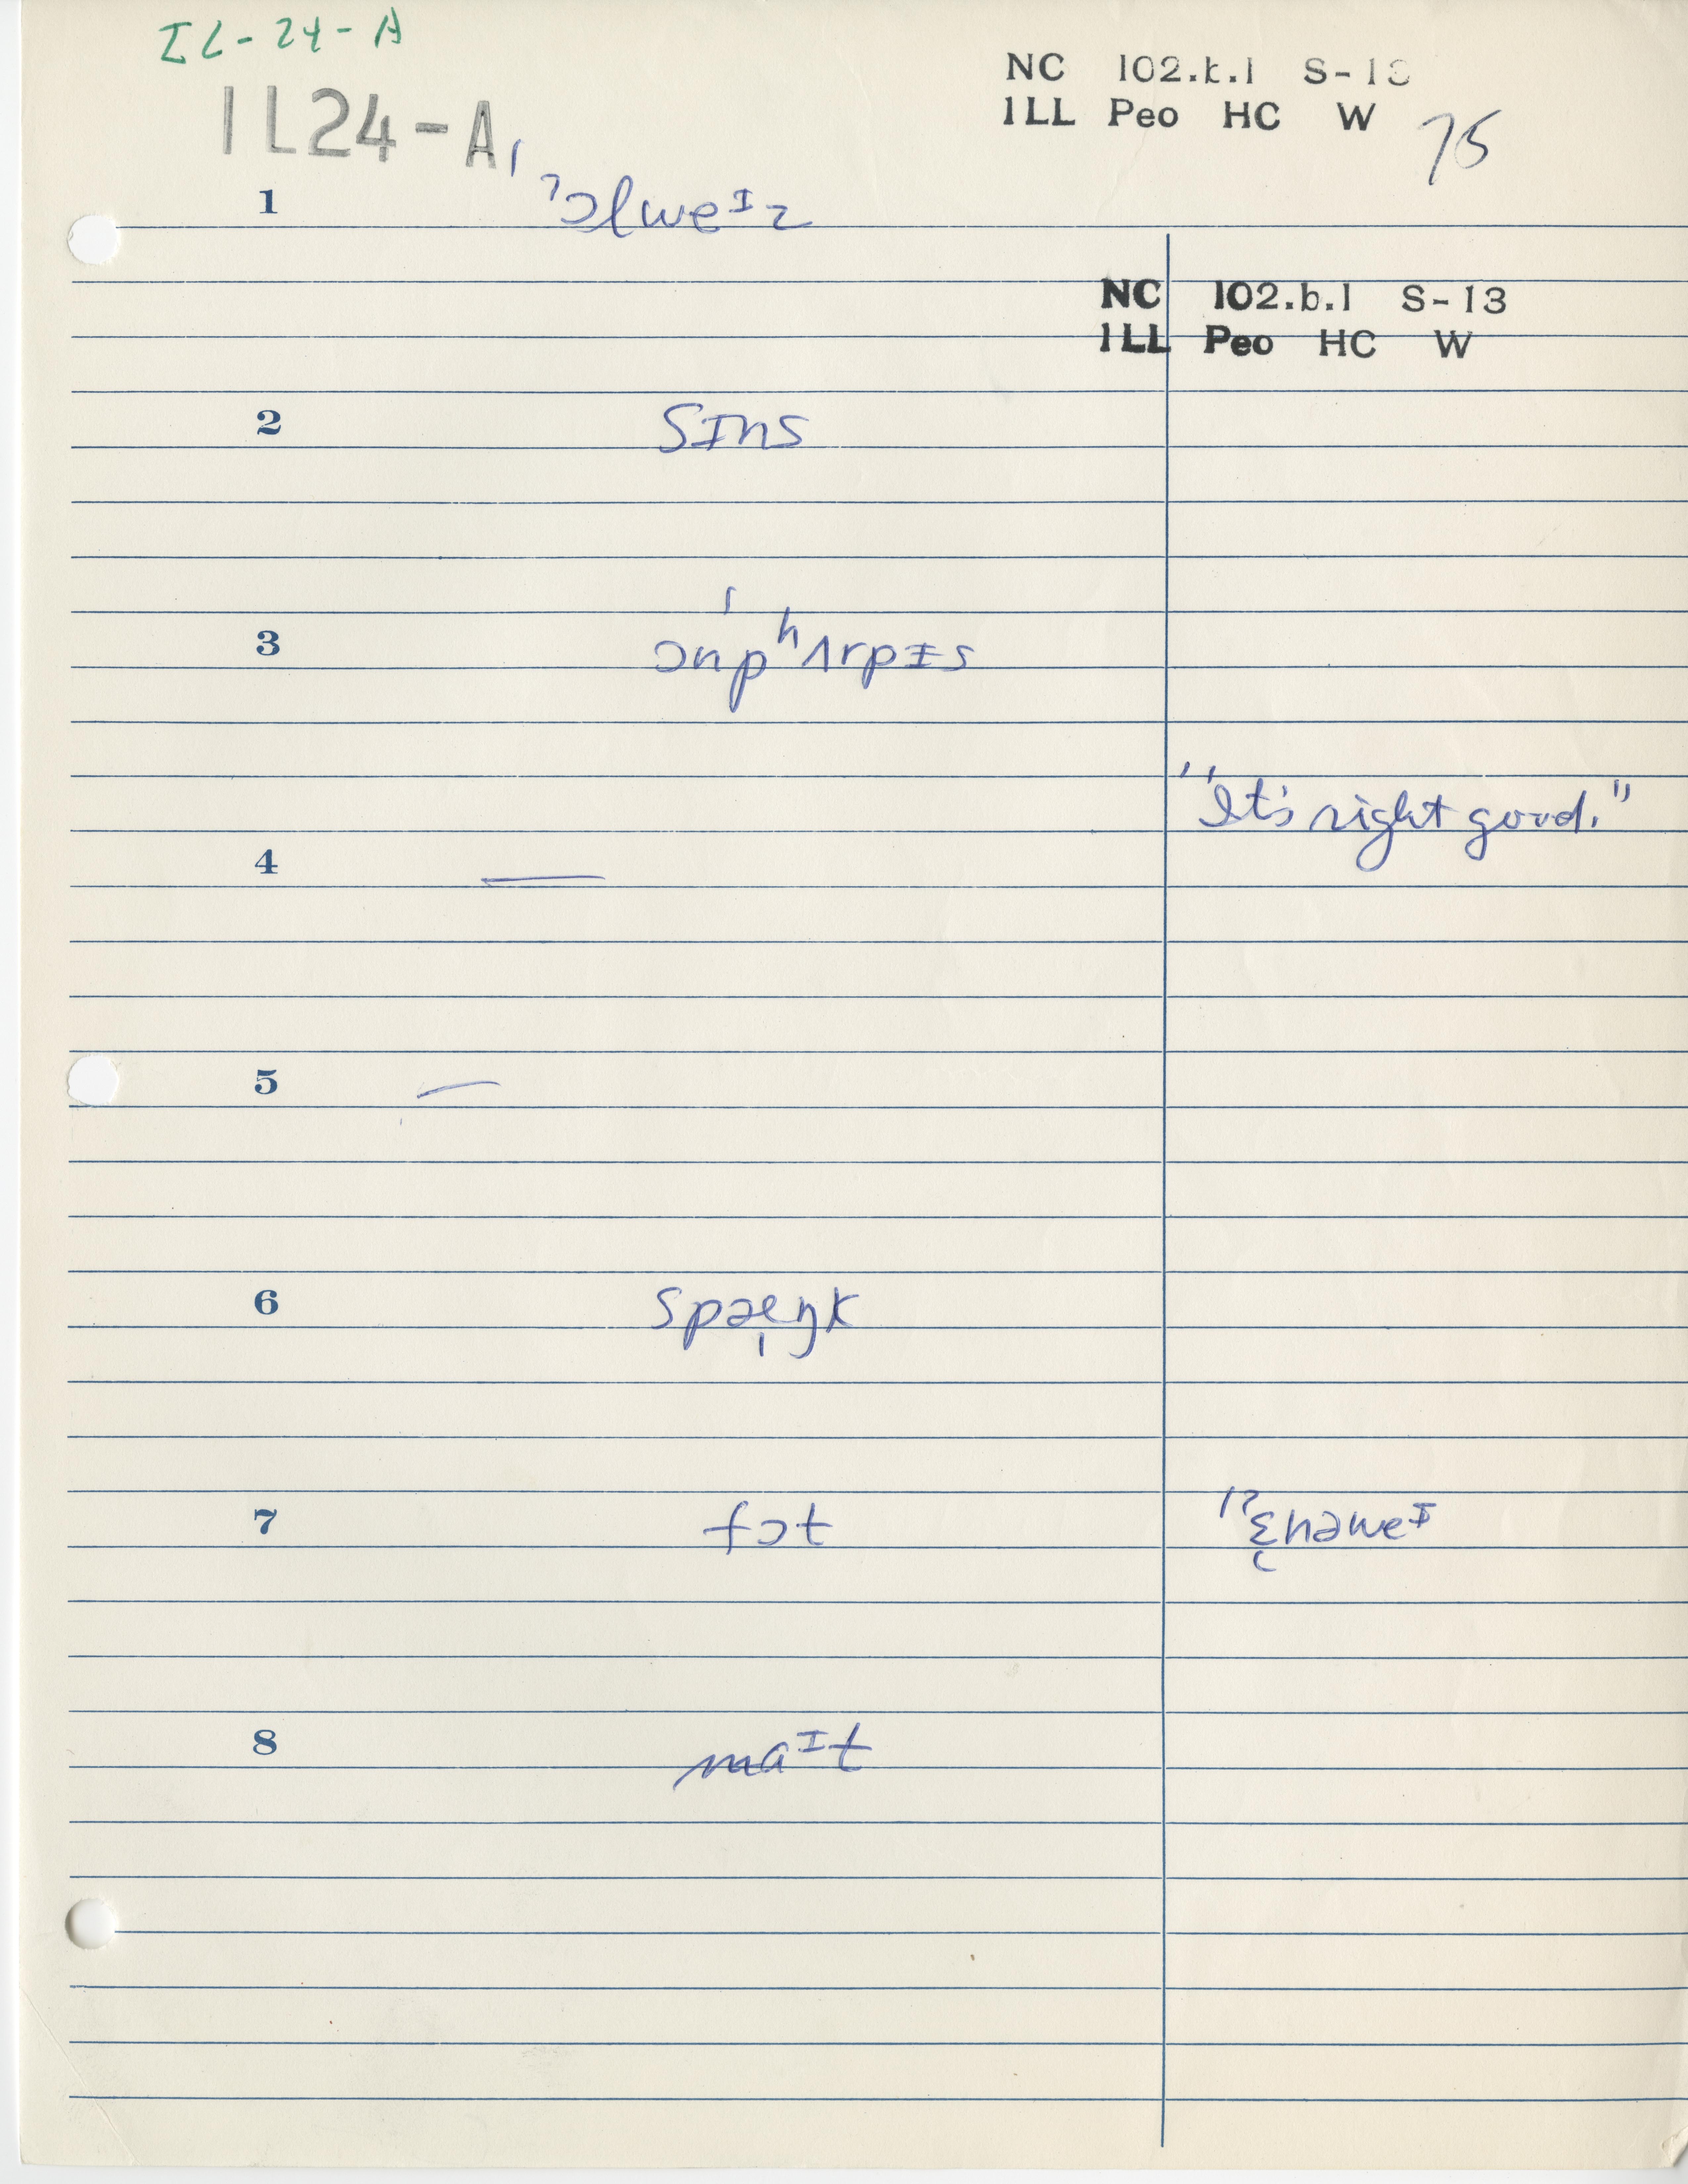 IL-24-A
NC 102.b.1 S-13
IL24-A
ILL Peo HC W 75
1 ˈɔlweᶦz
NC 102.b.1 S-13
ILL Peo HC W
2 sɪns
3 ɔnpʰʌrpɪs
"It's right good."
4 —
5 —
6 spæŋk
7 fɔt ɛnəweᶦ
8 maᶦt